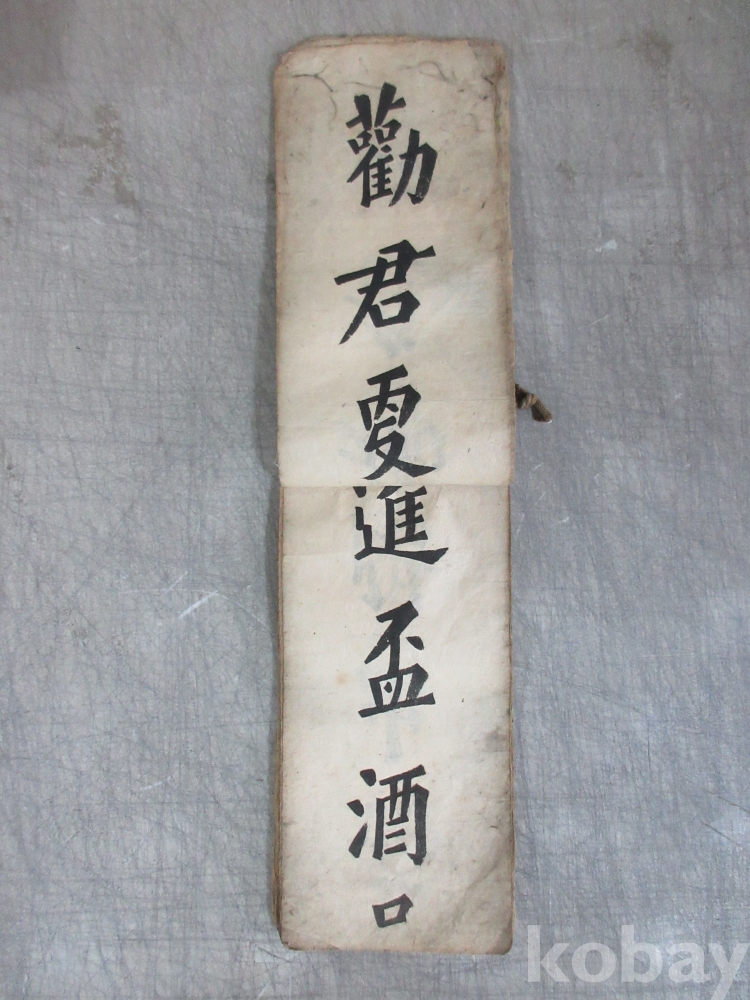 勸君更進盃酒口
kobay